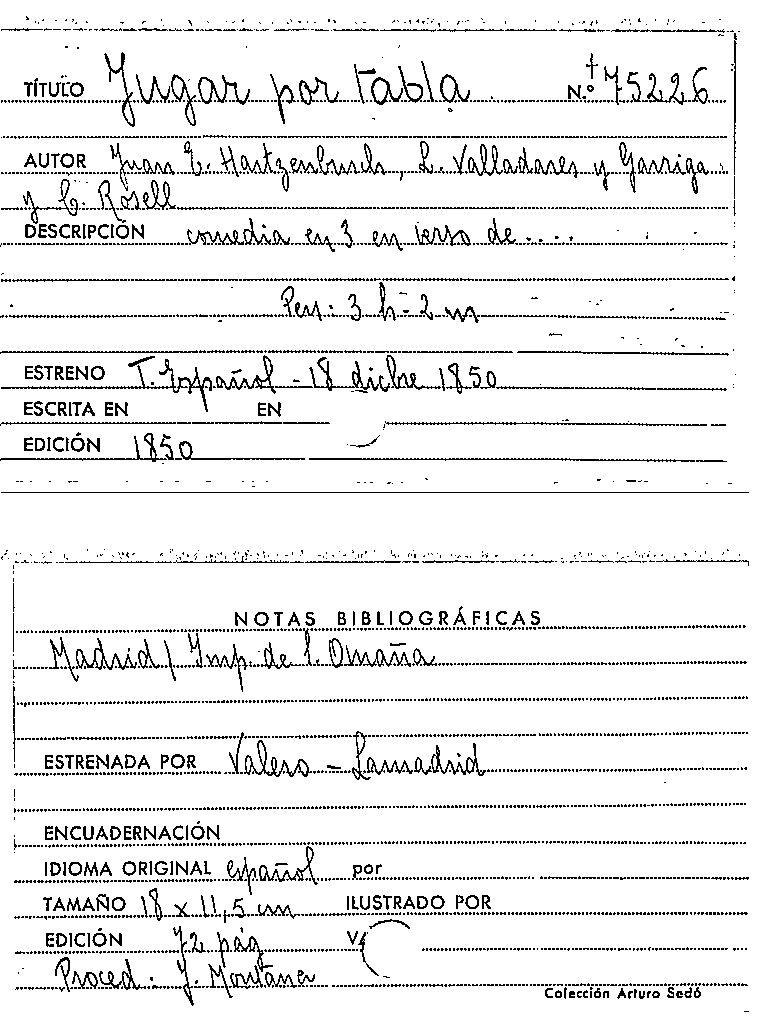 TÍTULO Jugar por tabla N.º † 75226
AUTOR Juan E. Hartzenbusch, L. Valladares y Garriga
y C. Rosell
DESCRIPCIÓN comedia en 3 en verso de....
Pers: 3 h - 2 m
ESTRENO T. Español - 18 dicbre 1850
ESCRITA EN EN
EDICIÓN 1850
NOTAS BIBLIOGRÁFICAS
Madrid / Imp. de C. Omaña
ESTRENADA POR Valero - Lamadrid
ENCUADERNACIÓN
IDIOMA ORIGINAL español por
TAMAÑO 18 x 11,5 cm ILUSTRADO POR
EDICIÓN 72 pág
Proced: J. Montaner
Colección Arturo Sedó